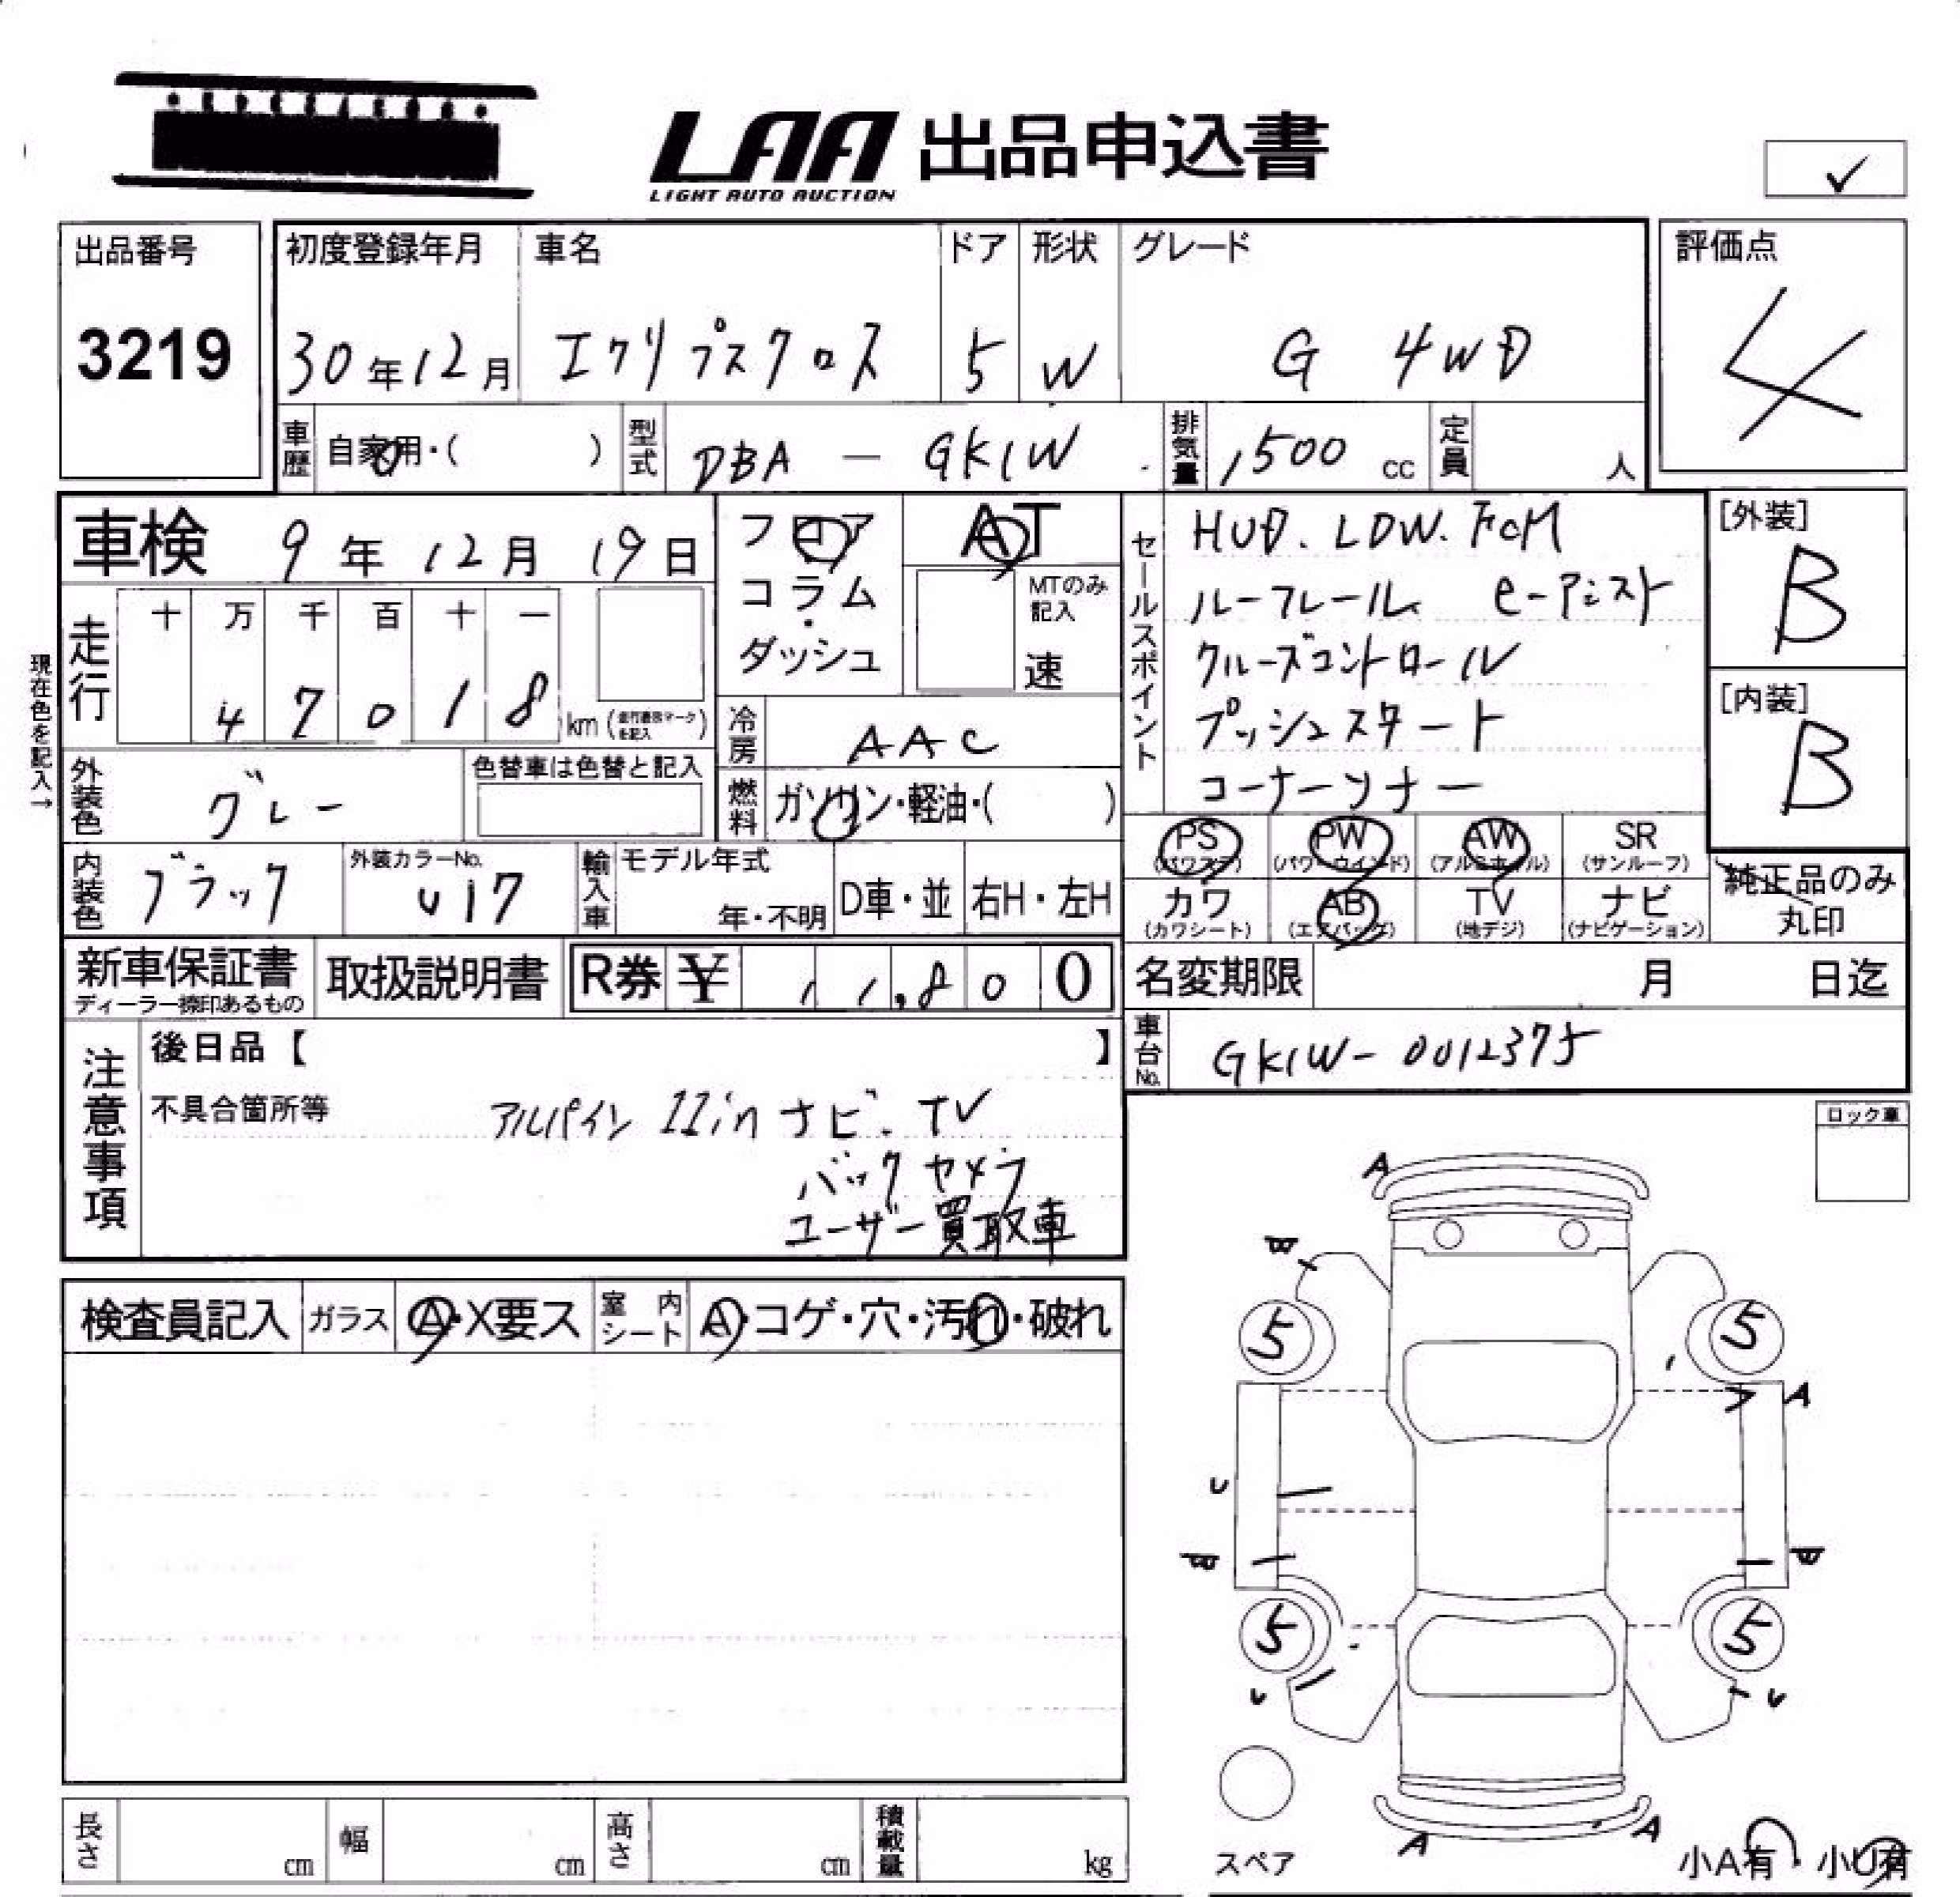 LAA 出品申込書
LIGHT AUTO AUCTION
✓
出品番号
3219
初度登録年月
30年12月
車名
エクリプスクロス
ドア
5
形状
W
グレード
G 4WD
評価点
4
車歴
自家用・( )
型式
DBA - GK1W
排気量
1500 cc
定員
人
車検 9年12月19日
フロア
コラム・
ダッシュ
AT
MTのみ記入
速
セールスポイント
HUD. LDW. FCM
ルーフレール e-アシスト
クルーズコントロール
プッシュスタート
コーナーソナー
[外装]
B
[内装]
B
現在色を記入→
走行
十 万 千 百 十 一
4 7 0 1 8 km
冷房
AAC
外装色
グレー
色替車は色替と記入
燃料
ガソリン・軽油・( )
PS (パワステ)
PW (パワーウインド)
AW (アルミホイル)
SR (サンルーフ)
カワ (カワシート)
AB (エアバッグ)
TV (地デジ)
ナビ (ナビゲーション)
純正品のみ
丸印
内装色
ブラック
外装カラーNo.
U17
輸入車
モデル年式
年・不明
D車・並
右H・左H
新車保証書
ディーラー捺印あるもの
取扱説明書
R券 ¥ 11,800
名変期限
月 日迄
車台No.
GK1W-0012375
注意事項
後日品【 】
不具合箇所等
アルパイン 11in ナビ. TV
バックカメラ
ユーザー買取車
ロック車
検査員記入
ガラス
A・X要ス
室内シート
A・コゲ・穴・汚れ・破れ
A
5
5
A
U
U
U
5
5
A
A
スペア
小A有・小U有
長さ cm
幅 cm
高さ cm
積載量 kg